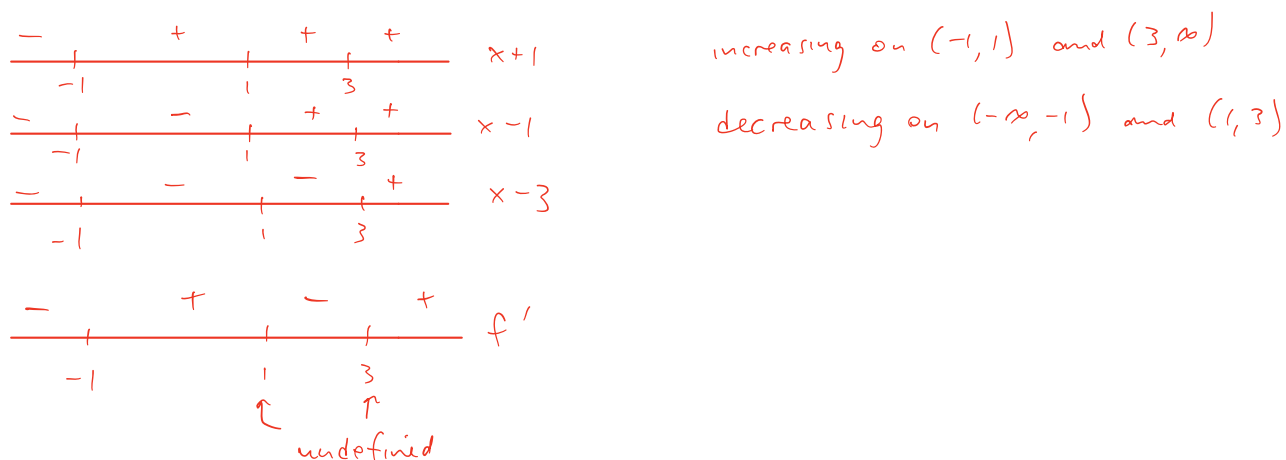 − + + +
x+1
-1 1 3
− − + +
x-1
-1 1 3
− − − +
x-3
-1 1 3
− + − +
f'
-1 1 3
undefined
increasing on (-1, 1) and (3, ∞)
decreasing on (-∞, -1) and (1, 3)